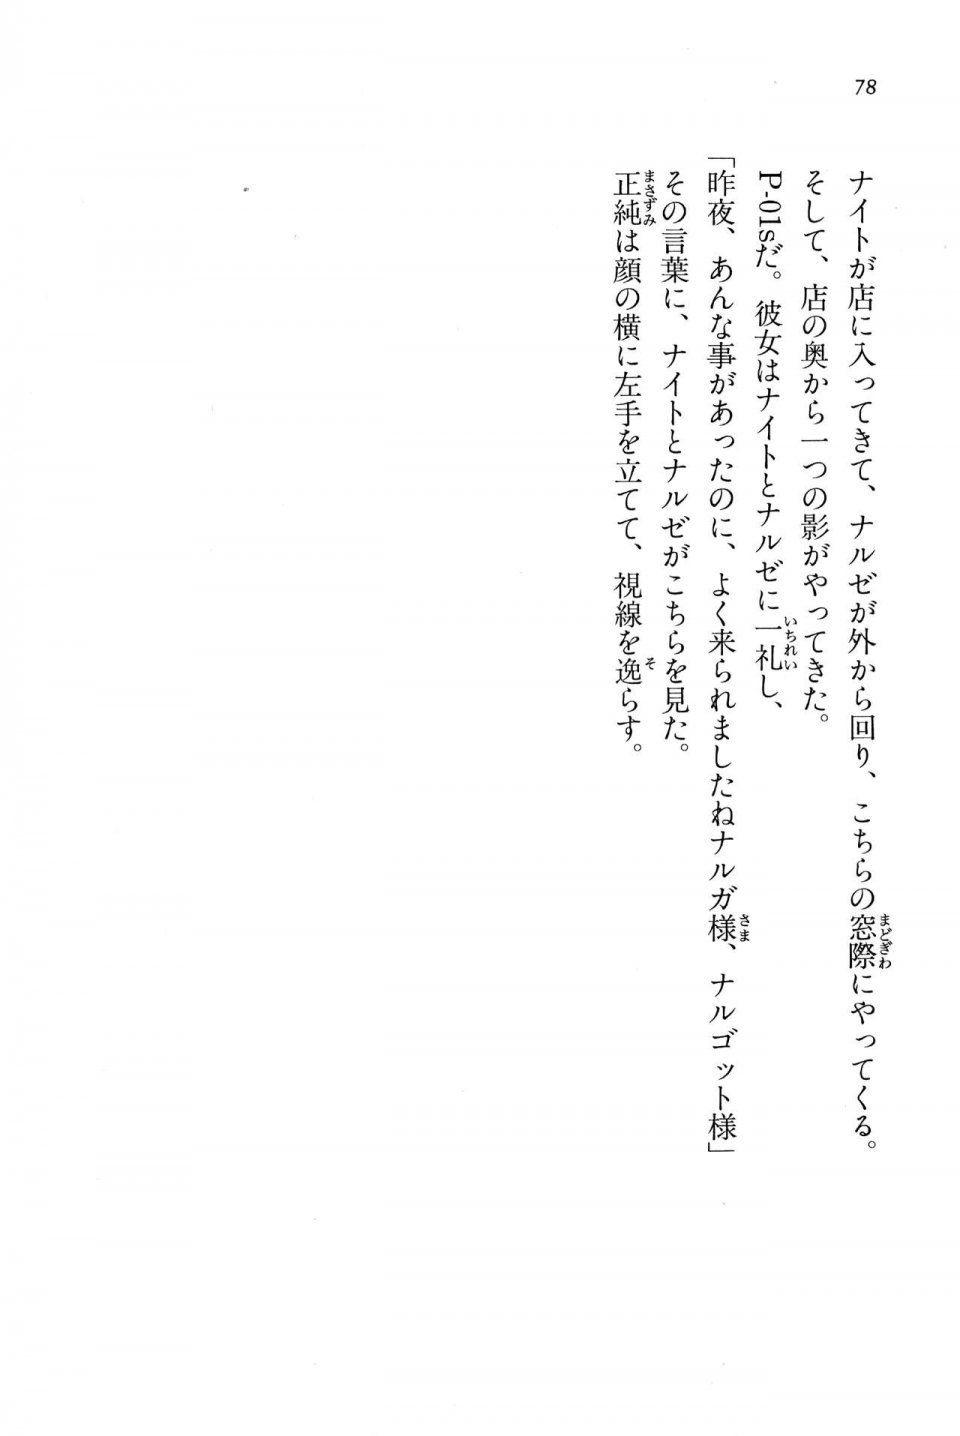 78
ナイトが店に入ってきて、ナルゼが外から回り、こちらの窓際にやってくる。
そして、店の奥から一つの影がやってきた。
P-01sだ。彼女はナイトとナルゼに一礼し、
「昨夜、あんな事があったのに、よく来られましたねナルガ様、ナルゴット様」
その言葉に、ナイトとナルゼがこちらを見た。
正純は顔の横に左手を立てて、視線を逸らす。